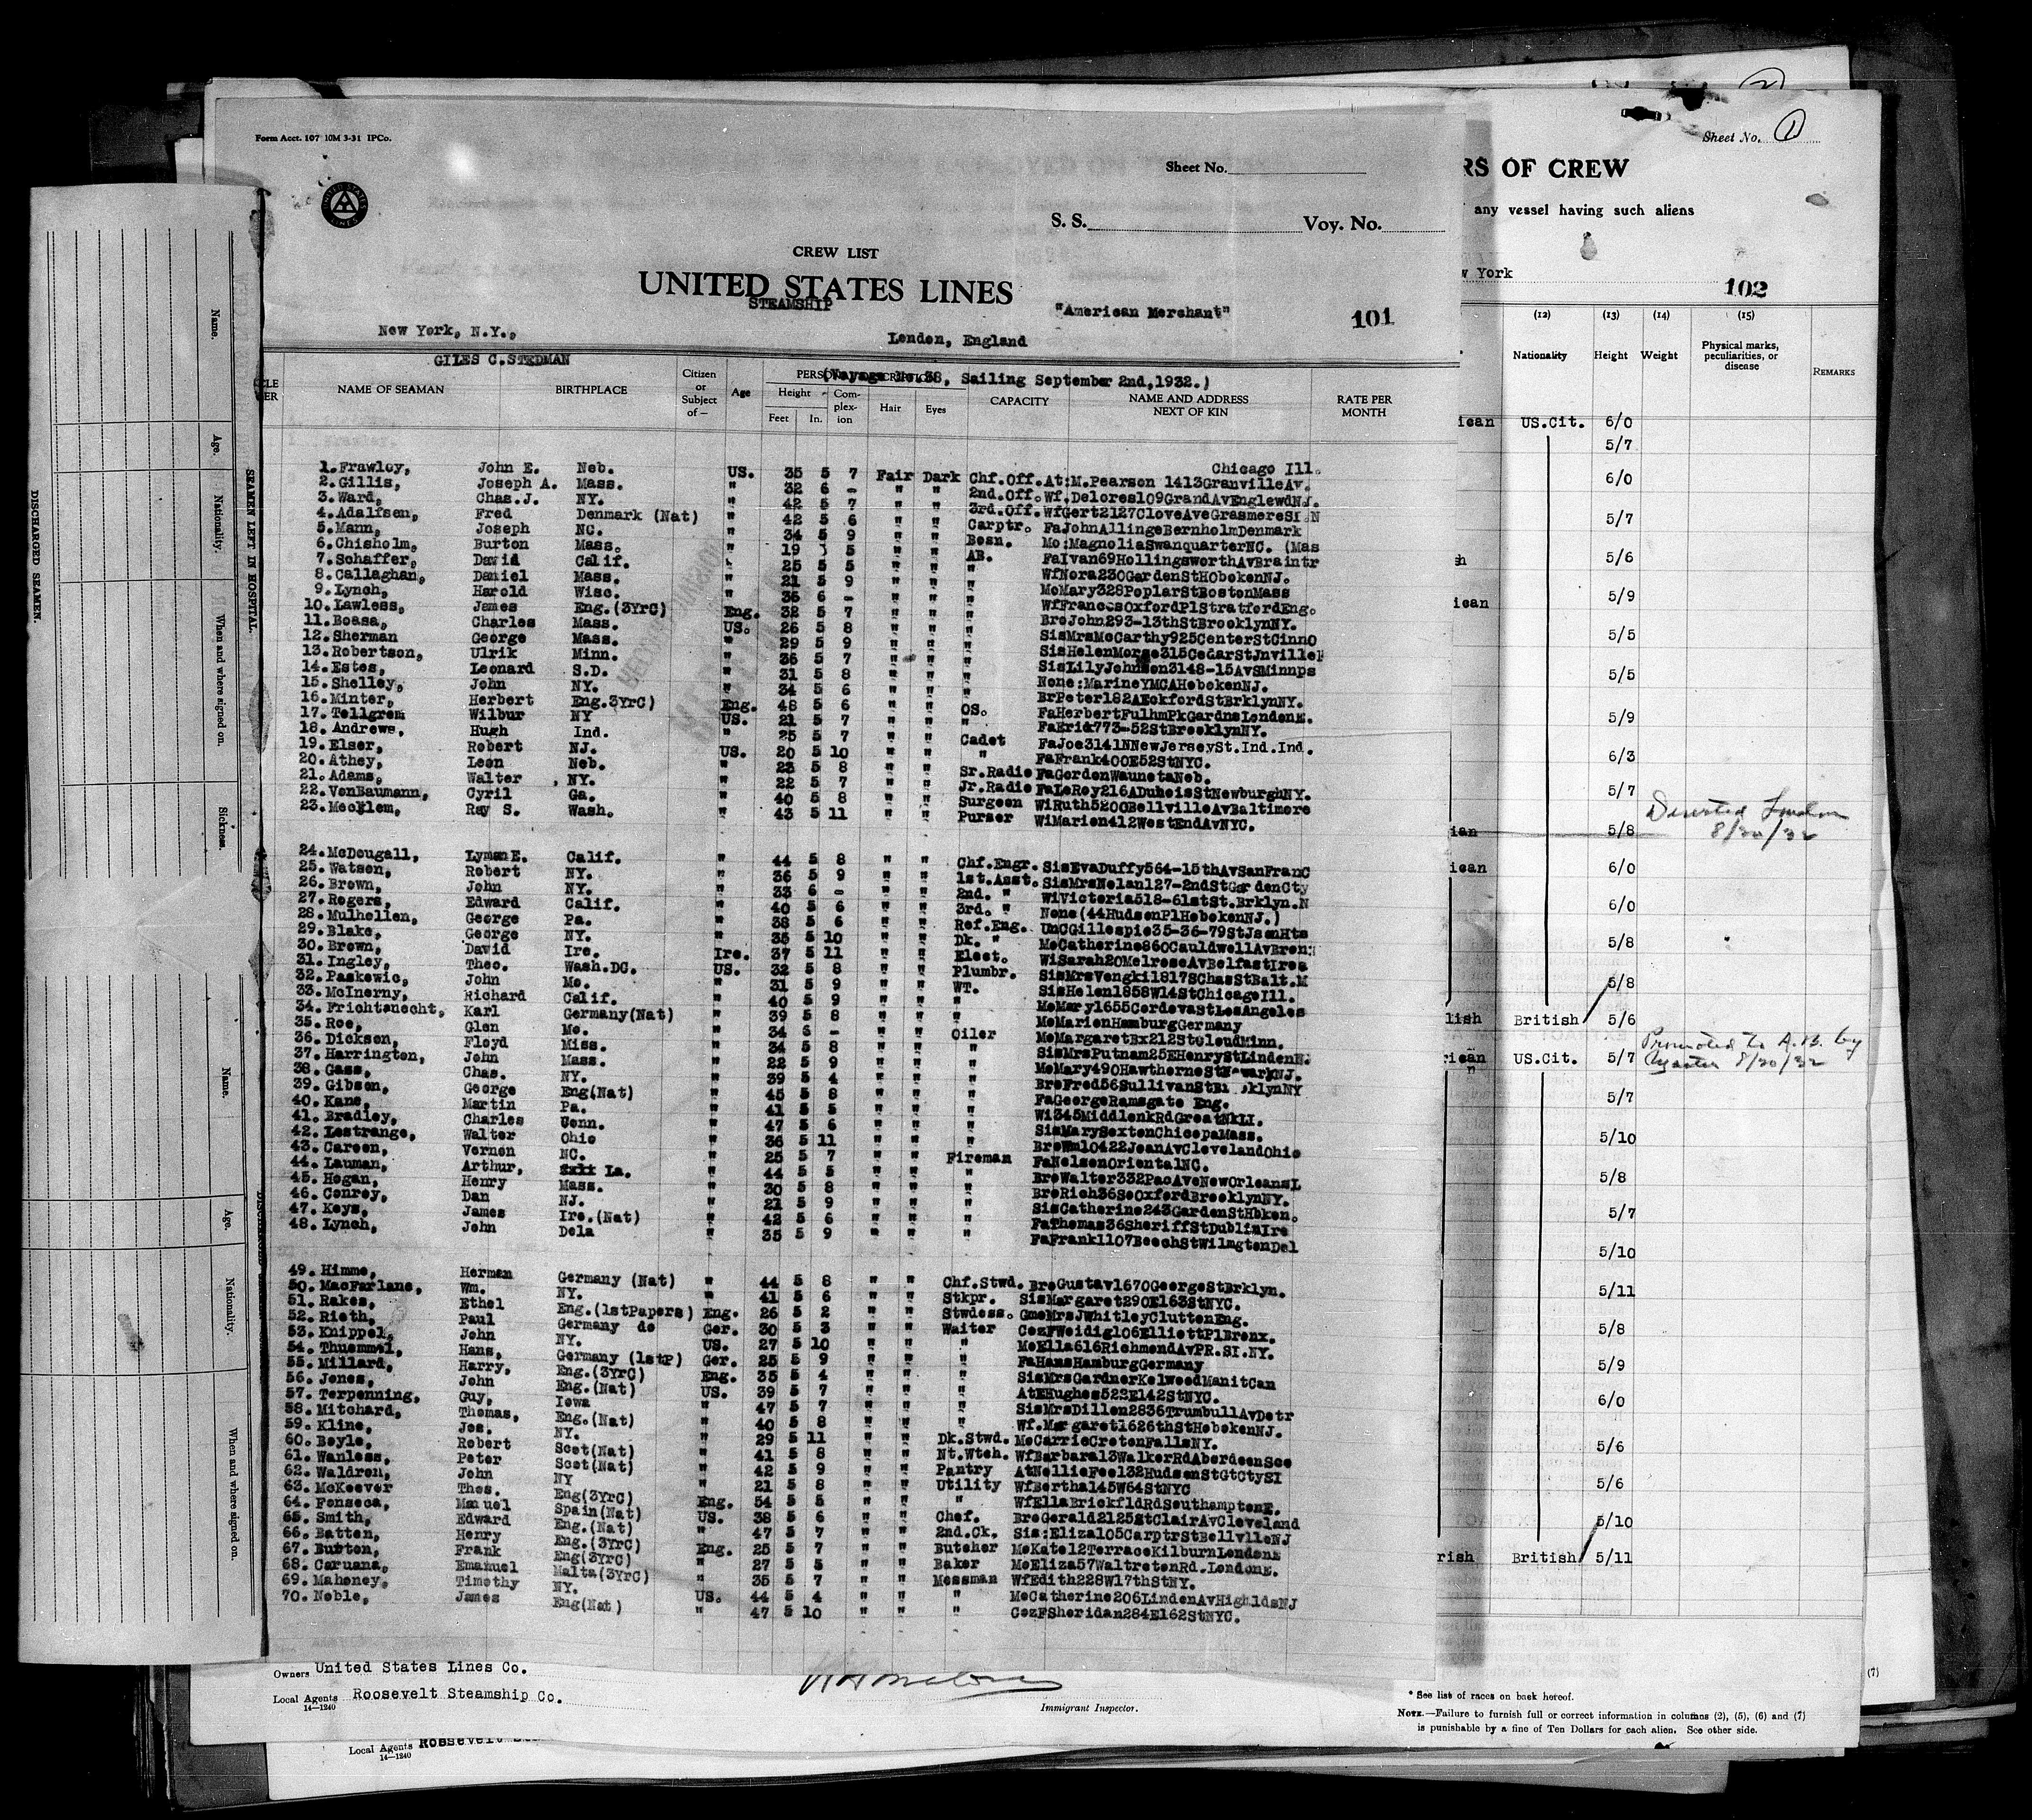 Form Acct. 107 10M 3-31 IPCo.
Sheet No.
S. S. Voy. No.
CREW LIST
UNITED STATES LINES
STEAMSHIP "American Merchant" 101
New York, N.Y., London, England
GILES C.STEDMAN
(Voyage No.38, Sailing September 2nd,1932.)
NAME OF SEAMAN BIRTHPLACE Citizen or Subject of— Age Height Feet In. Complexion Hair Eyes CAPACITY NAME AND ADDRESS NEXT OF KIN RATE PER MONTH
Chicago Ill.
1.Frawley, John E. Neb. US. 35 5 7 Fair Dark Chf.Off. At:M.Pearson 1413GranvilleAv.
2.Gillis, Joseph A. Mass. " 32 6 - " " 2nd.Off. Wf.Delores109GrandAvEnglewdNJ.
3.Ward, Chas.J. NY. " 42 5 7 " " 3rd.Off. WfGert2127CloveAveGrasmereSI.N
4.Adalfsen, Fred Denmark (Nat) " 42 5 6 " " Carptr. FaJohnAllingeBernholmDenmark
5.Mann, Joseph NC. " 34 5 9 " " Bosn. Mo:MagnoliaSwanquarterNC. (Mas
6.Chisholm, Burton Mass. " 19 5 " " AB. FaIvan69HollingsworthAvBraintr
7.Schaffer, David Calif. 25 5 5 " " " WfNora230GardenStHobokenNJ.
8.Callaghan, Daniel Mass. " 21 5 9 " " " MoMary328PoplarStBostonMass
9.Lynch, Harold Wisc. " 36 6 - " " " WfFrancesOxfordPlStratfordEng.
10.Lawless, James Eng.(3YrC) Eng. 32 5 7 " " " BroJohn293-13thStBrooklynNY.
11.Boasa, Charles Mass. US. 26 5 8 " " " SisMrsMcCarthy925CenterStCinnO
12.Sherman George Mass. " 29 5 9 " " " SisHelenMorse315CedarStJnville
13.Robertson, Ulrik Minn. " 36 5 7 " " " SisLilyJohnson3148-15AvSMinnps
14.Estes, Leonard S.D. " 31 5 8 " " " None:MarineYMCAHobokenNJ.
15.Shelley, John NY. " 34 5 6 " " " BrPeter182AEckfordStBrklynNY.
16.Minter, Herbert Eng.3YrC) Eng. 48 5 6 " " OS. FaHerbertFulhmPkGardnsLondonE.
17.Tellgrem Wilbur NY US. 21 5 7 " " " FaEric773-52StBrooklynNY.
18.Andrews, Hugh Ind. " 25 5 7 " " Cadet FaJoe3141NNewJerseySt.Ind.Ind.
19.Elser, Robert NJ. US. 20 5 10 " " " FaFrank400E52StNYC.
20.Athey, Leon Neb. " 23 5 8 " " Sr.Radio FaGordonWaunetaNeb.
21.Adams, Walter NY. " 22 5 7 " " Jr.Radio FaLeRoy216ADuboisStNewburghNY.
22.VonBaumann, Cyril Ga. " 40 5 8 " " Surgeon WiRuth5200BellvilleAvBaltimore
23.Mecklem, Ray S. Wash. " 43 5 11 " " Purser WiMarion412WestEndAvNYC.
24.McDougall, Lyman E. Calif. " 44 5 8 " " Chf.Engr. SisEvaDuffy564-15thAvSanFranC
25.Watson, Robert NY. " 36 5 9 " " 1st.Asst. SisMrsNolan127-2ndStGardenCty
26.Brown, John NY. " 33 6 - " " 2nd. " WiVictoria518-61stSt.Brklyn.N
27.Rogers, Edward Calif. " 40 5 6 " " 3rd. " None(44HudsonPlHobokenNJ.)
28.Mulhollen, George Pa. " 38 5 6 " " Ref.Eng. UnCGillespie35-36-79StJsonHts
29.Blake, George NY. " 35 5 10 " " Dk. " MoCatherine860CauldwellAvBronx
30.Brown, David Ire. Ire. 37 5 11 " " Elect. WiSarah20MelroseAvBelfastIrea
31.Ingley, Theo. Wash.DC. US. 32 5 8 " " Plumbr. SisMrsVengki1817SChasStBalt.M
32.Paskewic, John Mo. " 31 5 9 " " WT. SisHelen1858W14StChicagoIll.
33.McInerny, Richard Calif. " 40 5 9 " " " MoMary1655CordovaStLosAngeles
34.Frichtsnecht, Karl Germany(Nat) " 39 5 8 " " " MoMarionHamburgGermany
35.Roe, Glen Mo. " 34 6 - " " Oiler MoMargaretBx212StCloudMinn.
36.Dickson, Floyd Miss. " 34 5 8 " " " SisMrsPutnam25EHenryStLindenN.
37.Harrington, John Mass. " 22 5 9 " " " MoMary490HawthorneStNewarkNJ.
38.Gass, Chas. NY. " 39 5 4 " " " BroFred56SullivanStBrooklynNY
39.Gibson, George Eng(Nat) " 45 5 8 " " " FaGeorgeRamsgate Eng.
40.Kane, Martin Pa. " 41 5 5 " " " Wi345MiddlenkRdGreatNkLI.
41.Bradley, Charles Conn. " 47 5 6 " " " SisMarySextonChicopaMass.
42.Lestrange, Walter Ohio " 36 5 11 " " " BroWm10422JeanAvClevelandOhio
43.Careen, Vernon NC. " 25 5 7 " " Fireman FaNelsonOrientalNC.
44.Lauman, Arthur, La. " 44 5 5 " " " BroWalter332PacAveNewOrleansL
45.Hogan, Henry Mass. " 30 5 8 " " " BroRich36SoOxfordBrooklynNY.
46.Conroy, Dan NJ. " 21 5 9 " " " SisCatherine243GardenStHbken.
47.Keys, James Ire.(Nat) " 42 5 6 " " " FaThomas36SheriffStDublinIre
48.Lynch, John Dela " 35 5 9 " " " FaFrank1107BeechStWilmgtonDel
49.Himme, Herman Germany (Nat) " 44 5 8 " " Chf.Stwd. BroGustav1670GeorgeStBrklyn.
50.MacFarlane, Wm. NY. " 41 5 6 " " Stkpr. SisMargaret290E163StNYC.
51.Rakes, Ethel Eng.(1stPapers) Eng. 26 5 2 " " Stwdess. GmoMrsJWhitleyCluttonEng.
52.Rieth, Paul Germany do Ger. 30 5 3 " " Waiter CozFWeidig106ElliottPlBronx.
53.Knippel, John NY. US. 27 5 10 " " " MoElla616RichmondAvPR.SI.NY.
54.Thuemmel, Hans, Germany (1stP) Ger. 25 5 9 " " " FaHansHamburgGermany
55.Millard, Harry, Eng.(3YrC) Eng. 35 5 4 " " " SisMrsGardnerKelwoodManitCan
56.Jones, John Eng.(Nat) US. 39 5 7 " " " AtEHughes522E142StNYC.
57.Terpenning, Guy, Iowa " 47 5 7 " " " SisMrsDillon2836TrumbullAvDetr
58.Mitchard, Thomas, Eng.(Nat) " 40 5 8 " " " Wf.Margaret1626thStHobokenNJ.
59.Kline, Jos. NY. " 29 5 11 " " Dk.Stwd. MoCarrieCrotonFallsNY.
60.Boyle, Robert Scot(Nat) " 41 5 8 " " Nt.Wtch. WfBarbara13WalkerRdAberdeenSco
61.Wanless, Peter Scot(Nat) " 42 5 9 " " Pantry AtNellieFee132HudsonStGtCtySI
62.Waldron, John NY " 21 5 8 " " Utility WfBertha145W64StNYC
63.McKeever Thos. Eng(3YrC) Eng. 54 5 5 " " " WfEllaBrickfldRdSouthamptonE.
64.Fonseca, Manuel Spain(Nat) US. 38 5 6 " " Chef. BroGerald2125StClairAvCleveland
65.Smith, Edward Eng.(Nat) " 47 5 7 " " 2nd.Ck. Sis:Eliza105CarptrStBellvlleNJ
66.Batten, Henry Eng.(3YrC) Eng. 25 5 7 " " Butcher MoKate12TerraceKilburnLondonE
67.Burton, Frank Eng(3YrC) " 27 5 5 " " Baker MoEliza57WaltretonRd.LondonE.
68.Caruana, Emanuel Malta(3YrC) " 35 5 7 " " Messman WfEdith228W17thStNY.
69.Mahoney, Timothy NY. US. 44 5 4 " " " MoCatherine206LindenAvHighldsNJ
70.Noble, James Eng(Nat) " 47 5 10 " " " CozFSheridan284E162StNYC.
Owners United States Lines Co.
Local Agents Roosevelt Steamship Co.
14—1240
Immigrant Inspector.
Local Agents Roosevelt
14—1240
Sheet No. 1
RS OF CREW
any vessel having such aliens
w York 102
(12) (13) (14) (15)
Nationality Height Weight Physical marks, peculiarities, or disease REMARKS
ican US.Cit. 6/0
5/7
6/0
5/7
5/6
ican 5/9
5/5
5/5
5/9
6/3
5/7
Deserted London
ian 5/8 8/30/32
ican 6/0
6/0
5/8
5/8
lish British 5/6
Promoted to A.B. by
rican US.Cit. 5/7 Master 8/20/32
5/7
5/10
5/8
5/7
5/10
5/11
5/8
5/9
6/0
5/6
5/6
5/10
rish British 5/11
* See list of races on back hereof.
NOTE.—Failure to furnish full or correct information in columns (2), (5), (6) and (7)
is punishable by a fine of Ten Dollars for each alien. See other side.
(7)
DISCHARGED SEAMEN.
SEAMEN LEFT IN HOSPITAL.
Name.
Age.
Nationality.
When and where signed on.
Sickness.
Name.
Age.
Nationality.
When and where signed on.